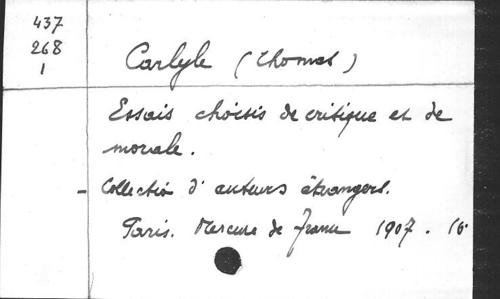 437
268
1
Carlyle (Thomas)
Essais choisis de critique et de
morale.
- Collection d'auteurs étrangers.
Paris. Mercure de France 1907. 16°